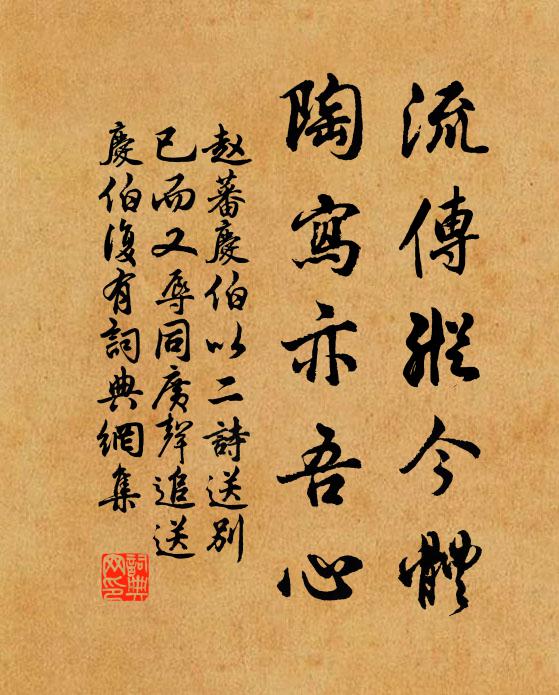 流傳縱今體
陶寫亦吾心
赵蕃慶伯以二詩送别
已而又辱同廣聲追送
慶伯復有詞典網集
詞典網印